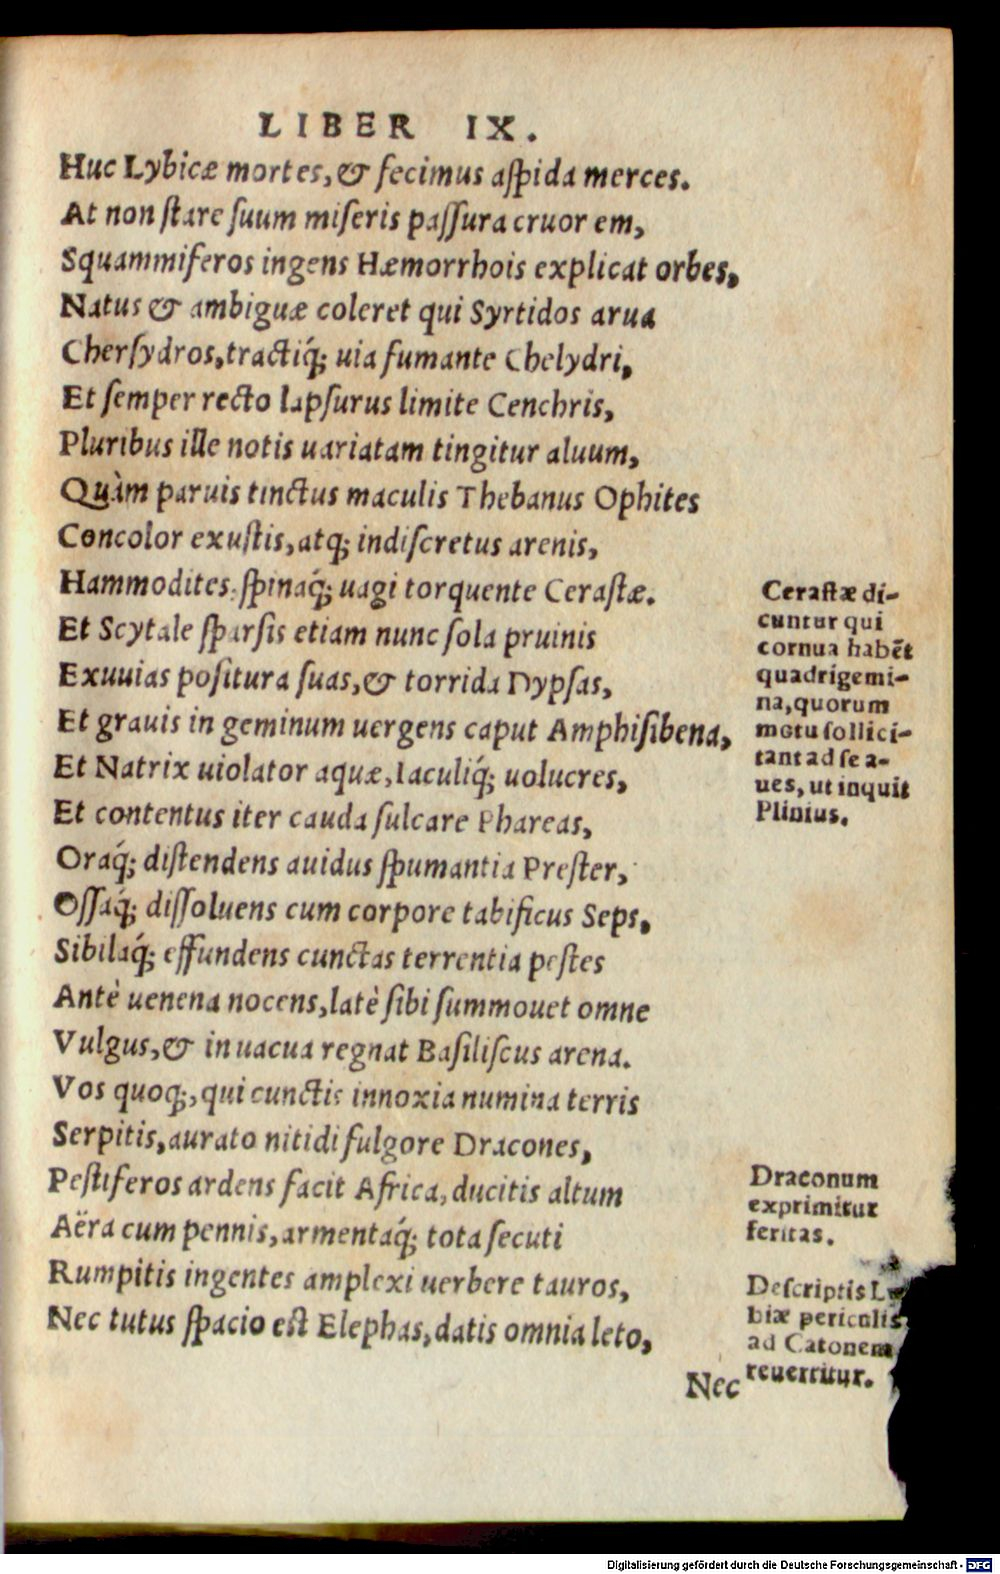 LIBER IX.
Huc Lybicæ mortes, & fecimus aſpida merces.
At non ſtare ſuum miſeris paſſura cruor em,
Squammiferos ingens Hæmorrhois explicat orbes,
Natus & ambiguæ coleret qui Syrtidos arua
Cherſydros, tractiq́; uia fumante Chelydri,
Et ſemper recto lapſurus limite Cenchris,
Pluribus ille notis uariatam tingitur aluum,
Quàm paruis tinctus maculis Thebanus Ophites
Concolor exuſtis, atq; indiſcretus arenis,
Hammodites: ſpinaq́; uagi torquente Ceraſtæ.
Et Scytale ſparſis etiam nunc ſola pruinis
Exuuias poſitura ſuas, & torrida Dypſas,
Et grauis in geminum uergens caput Amphiſibena,
Et Natrix uiolator aquæ, Iaculiq́; uolucres,
Et contentus iter cauda ſulcare Phareas,
Oraq́; diſtendens auidus ſpumantia Preſter,
Oſſaq́; diſſoluens cum corpore tabificus Seps,
Sibilaq́; effundens cunctas terrentia peſtes
Antè uenena nocens, latè ſibi ſummouet omne
Vulgus, & in uacua regnat Baſiliſcus arena.
Vos quoq;, qui cunctis innoxia numina terris
Serpitis, aurato nitidi fulgore Dracones,
Peſtiferos ardens facit Africa, ducitis altum
Aëra cum pennis, armentaq́; tota ſecuti
Rumpitis ingentes amplexi uerbere tauros,
Nec tutus ſpacio eſt Elephas, datis omnia leto,
Nec
Ceraſtæ di-
cuntur qui
cornua habēt
quadrigemi-
na, quorum
motu ſollici-
tant ad ſe a-
ues, ut inquit
Plinius.
Draconum
exprimitur
feritas.
Deſcriptis
biæ periculis
ad Catonem
reuertitur.
Digitalisierung gefördert durch die Deutsche Forschungsgemeinschaft - DFG